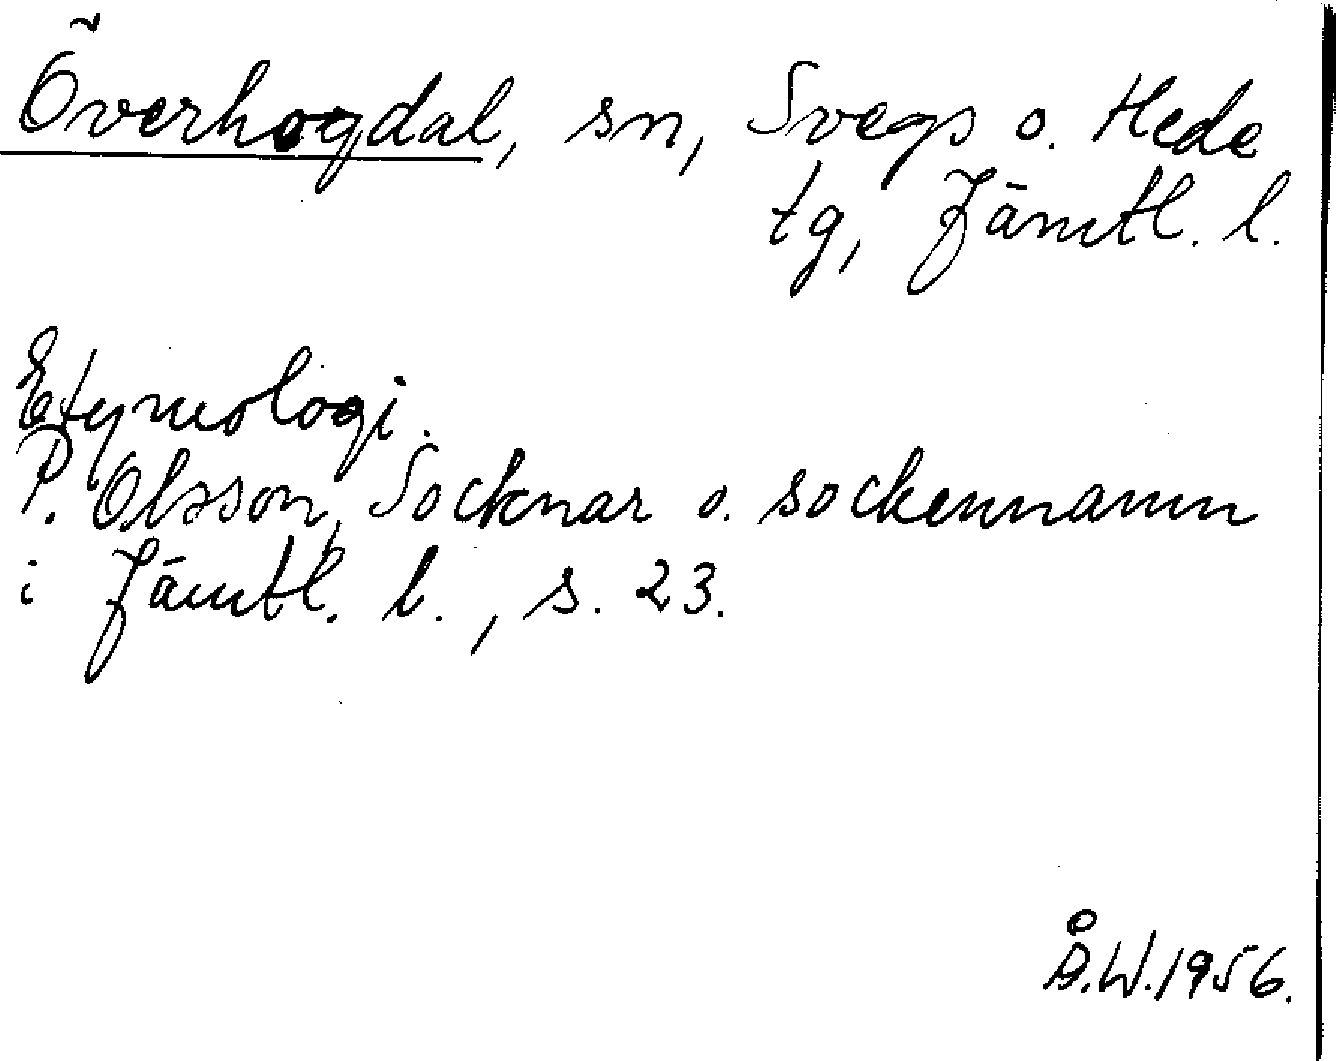 Överhogdal, sn, Svegs o. Hede
tg, Jämtl. l.
Etymologi.
P. Olsson, Socknar o. sockennamn
i Jämtl. l., s. 23.
Å.W.1956.